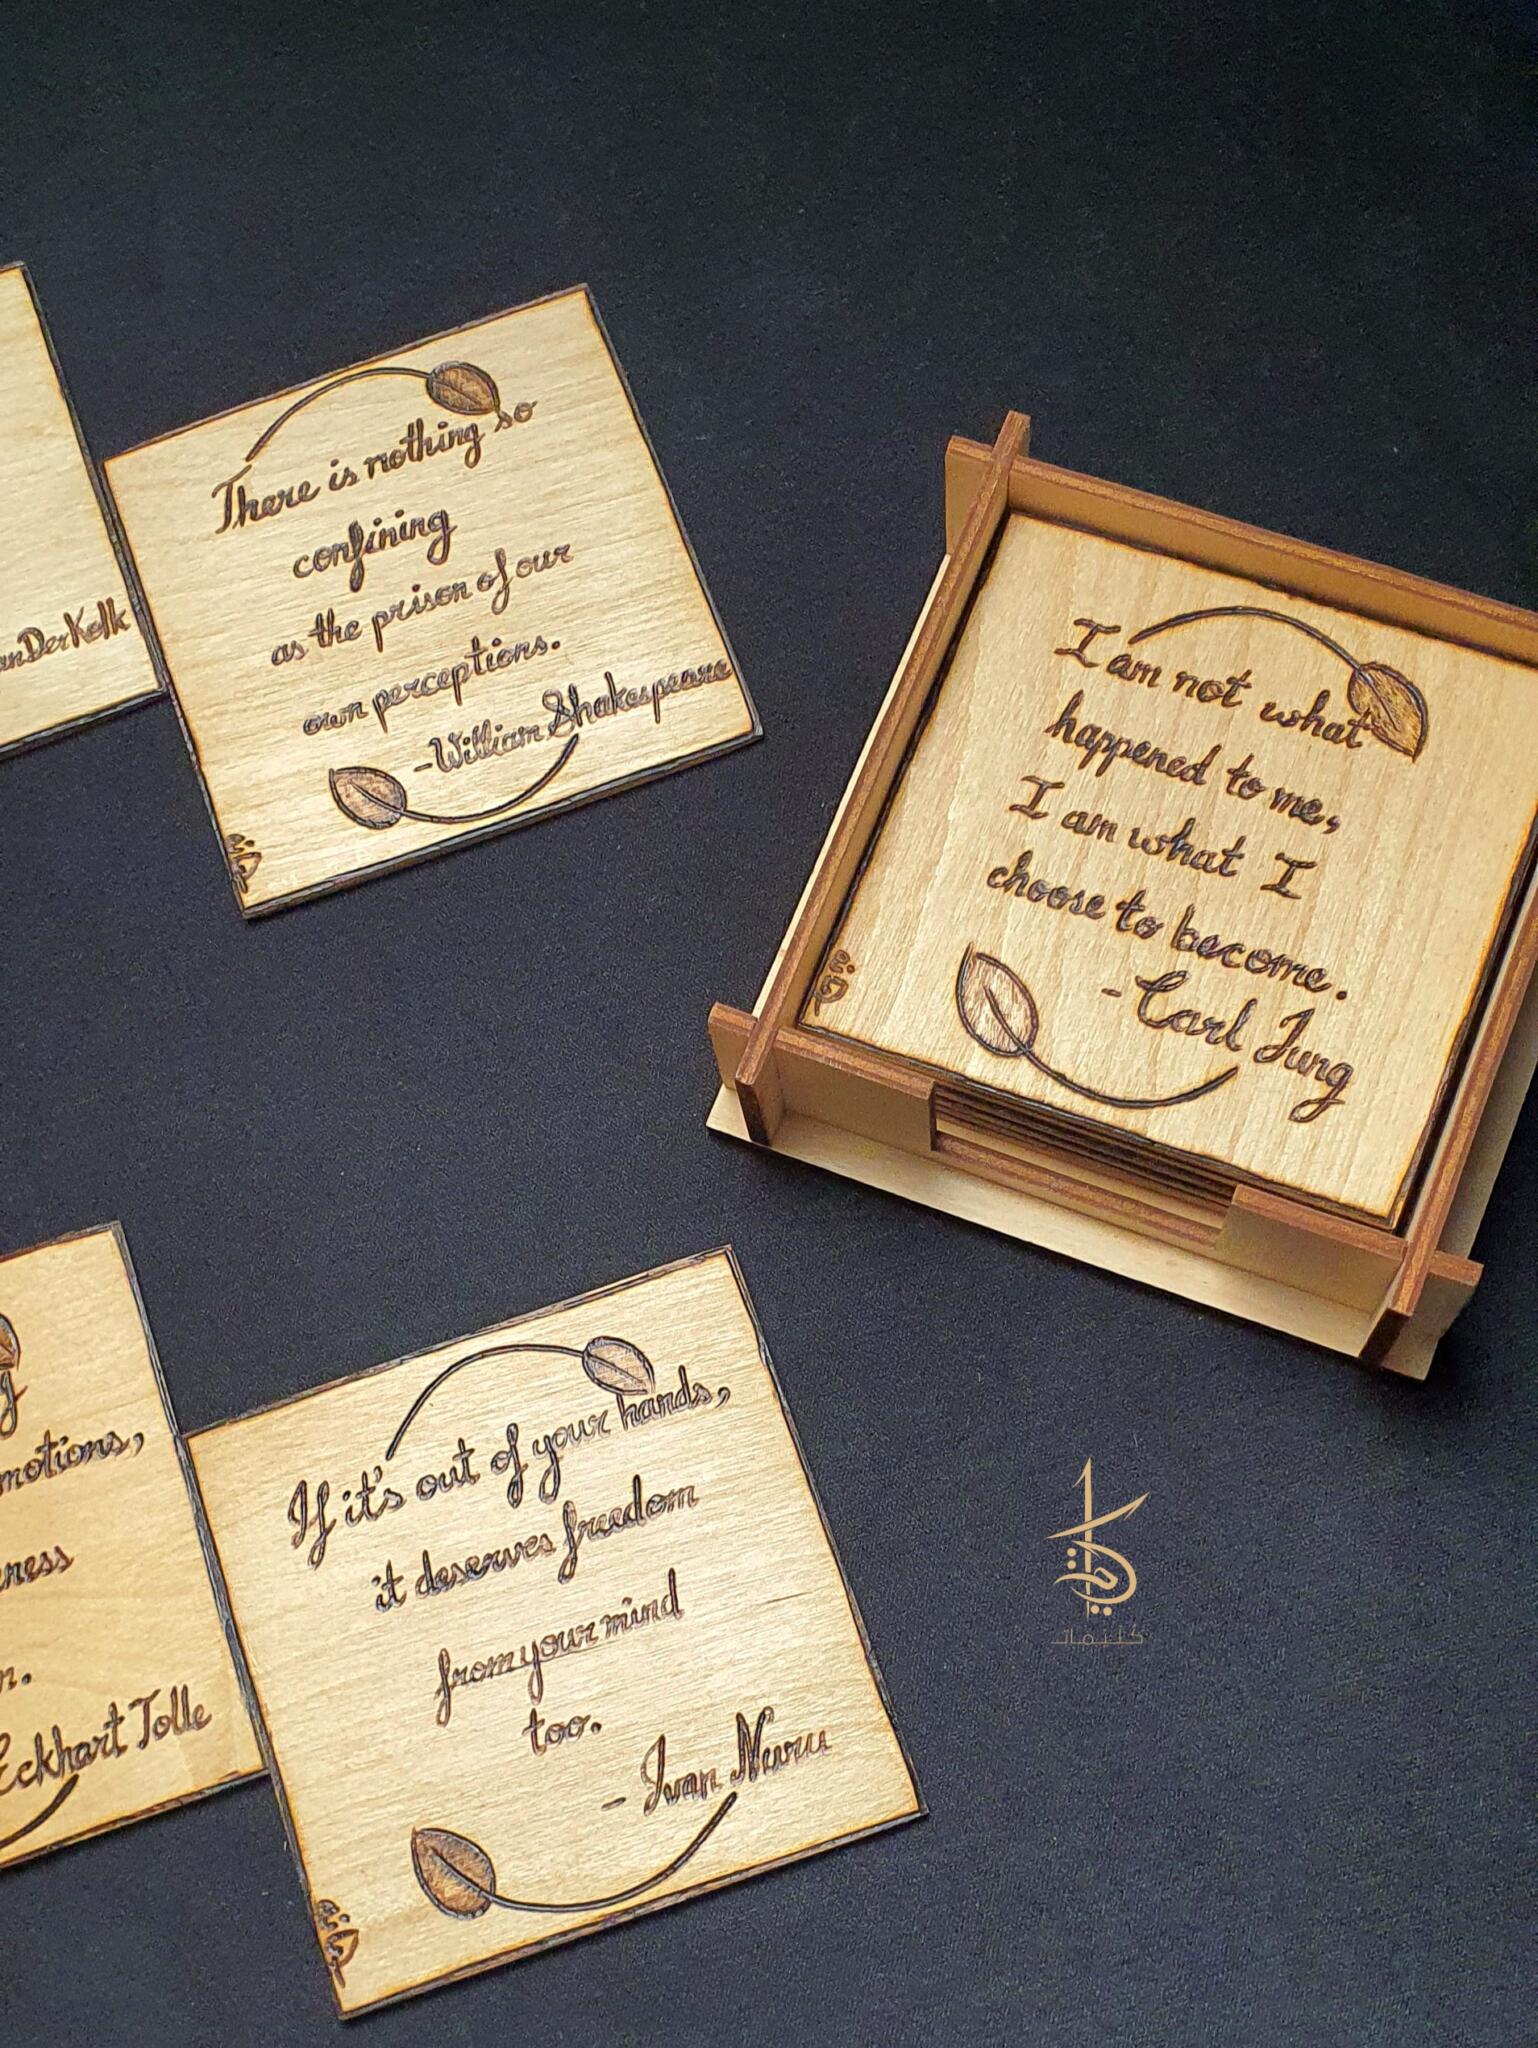 anDerKolk
There is nothing so
confining
as the prison of our
own perceptions.
-William Shakespeare
I am not what
happened to me,
I am what I
choose to become.
-Carl Jung
motions,
eness
n.
Eckhart Tolle
If it's out of your hands,
it deserves freedom
from your mind
too.
- Ivan Nuru
كليمات